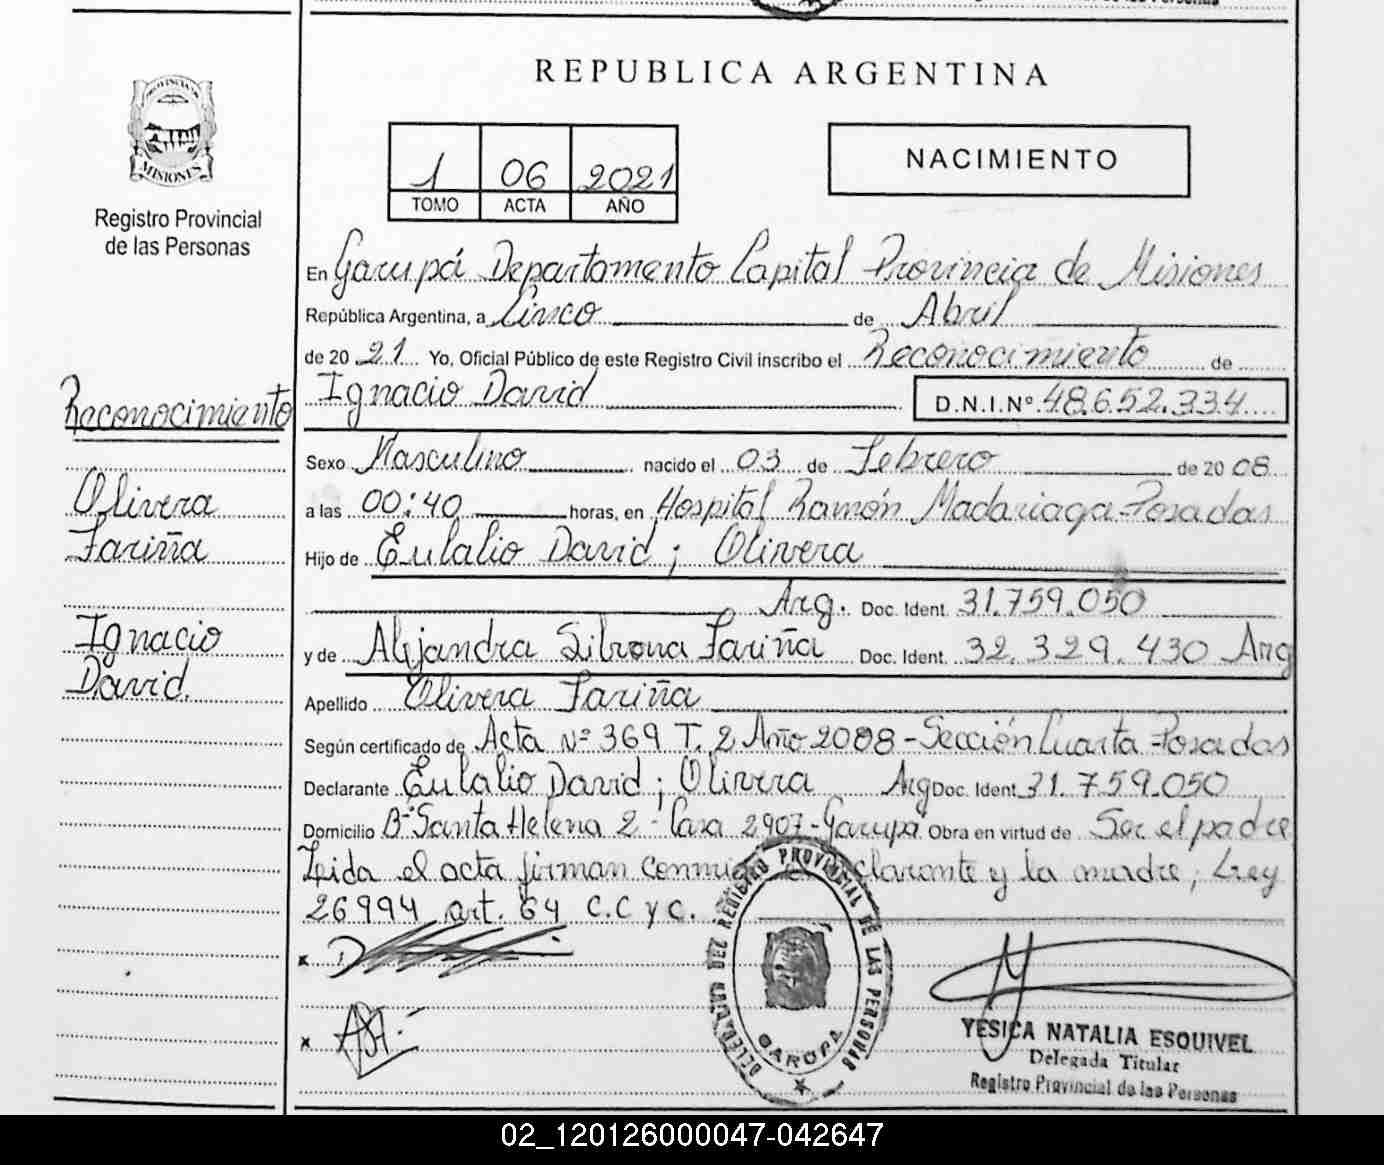 de las Personas
PROVINCIA DE
MISIONES
Registro Provincial
de las Personas
REPUBLICA ARGENTINA
1 06 2021
TOMO ACTA AÑO
NACIMIENTO
En Garupá Departamento Capital Provincia de Misiones
República Argentina, a Cinco de Abril
de 20 21 Yo, Oficial Público de este Registro Civil inscribo el Reconocimiento de
Ignacio David D.N.I.Nº 48.652.334
Reconocimiento
Olivera
Fariña
Ignacio
David
Sexo Masculino nacido el 03 de Febrero de 20 08
a las 00:40 horas, en Hospital Ramón Madariaga-Posadas
Hijo de Eulalio David ; Olivera
Arg. Doc. Ident. 31.759.050
y de Alejandra Silvana Fariña Doc. Ident. 32.329.430 Arg
Apellido Olivera Fariña
Según certificado de Acta Nº 369 T. 2 Año 2008 - Sección Cuarta - Posadas
Declarante Eulalio David ; Olivera Arg Doc. Ident. 31.759.050
Domicilio Bº Santa Helena 2 - Casa 2907 - Garupá Obra en virtud de Ser el padre
Leida el acta firman declarante y la madre, Ley
26994 art. 64 C.C y C.
DELEGACION DEL REGISTRO PROVINCIAL DE LAS PERSONAS
GARUPA
YESICA NATALIA ESQUIVEL
Delegada Titular
Registro Provincial de las Personas
02_120126000047-042647